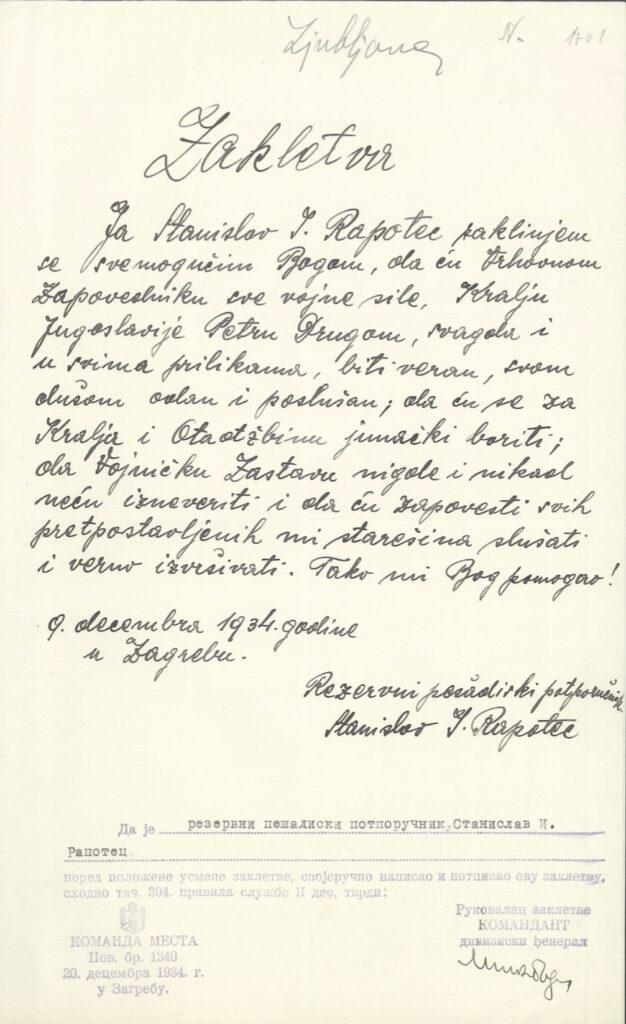 Ljubljana
N. 1101
Zakletva
Ja Stanislav I. Rapotec zaklinjem
se svemogućim Bogom, da ću Vrhovnom
Zapovedniku sve vojne sile, Kralju
Jugoslavije Petru Drugom, svagda i
u svima prilikama, biti veran, svom
dušom odan i poslušan; da ću se za
Kralja i Otadžbinu junački boriti;
da Vojničku Zastavu nigde i nikad
neću izneveriti i da ću zapovesti svih
pretpostavljenih mi starešina slušati
i verno izvršivati. Tako mi Bog pomogao!
9. decembra 1934. godine
u Zagrebu.
Rezervni pešadiski potporučnik
Stanislav I. Rapotec
Да је резервни пешадиски потпоручник, Станислав И.
Рапотец
поред положене усмене заклетве, својеручно написао и потписао ову заклетву,
сходно тач. 394. правила службе II део, тврди:
КОМАНДА МЕСТА
Пов. бр. 1340
20. децембра 1934. г.
у Загребу.
Руковалац заклетве
КОМАНДАНТ
дивизиски ђенерал